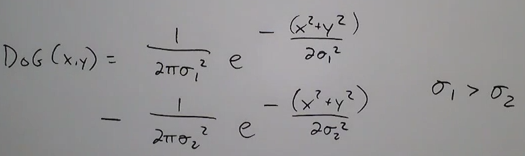 DoG(x,y) = 1/(2πσ₁²) e^(-(x²+y²)/(2σ₁²))
- 1/(2πσ₂²) e^(-(x²+y²)/(2σ₂²)) σ₁ > σ₂